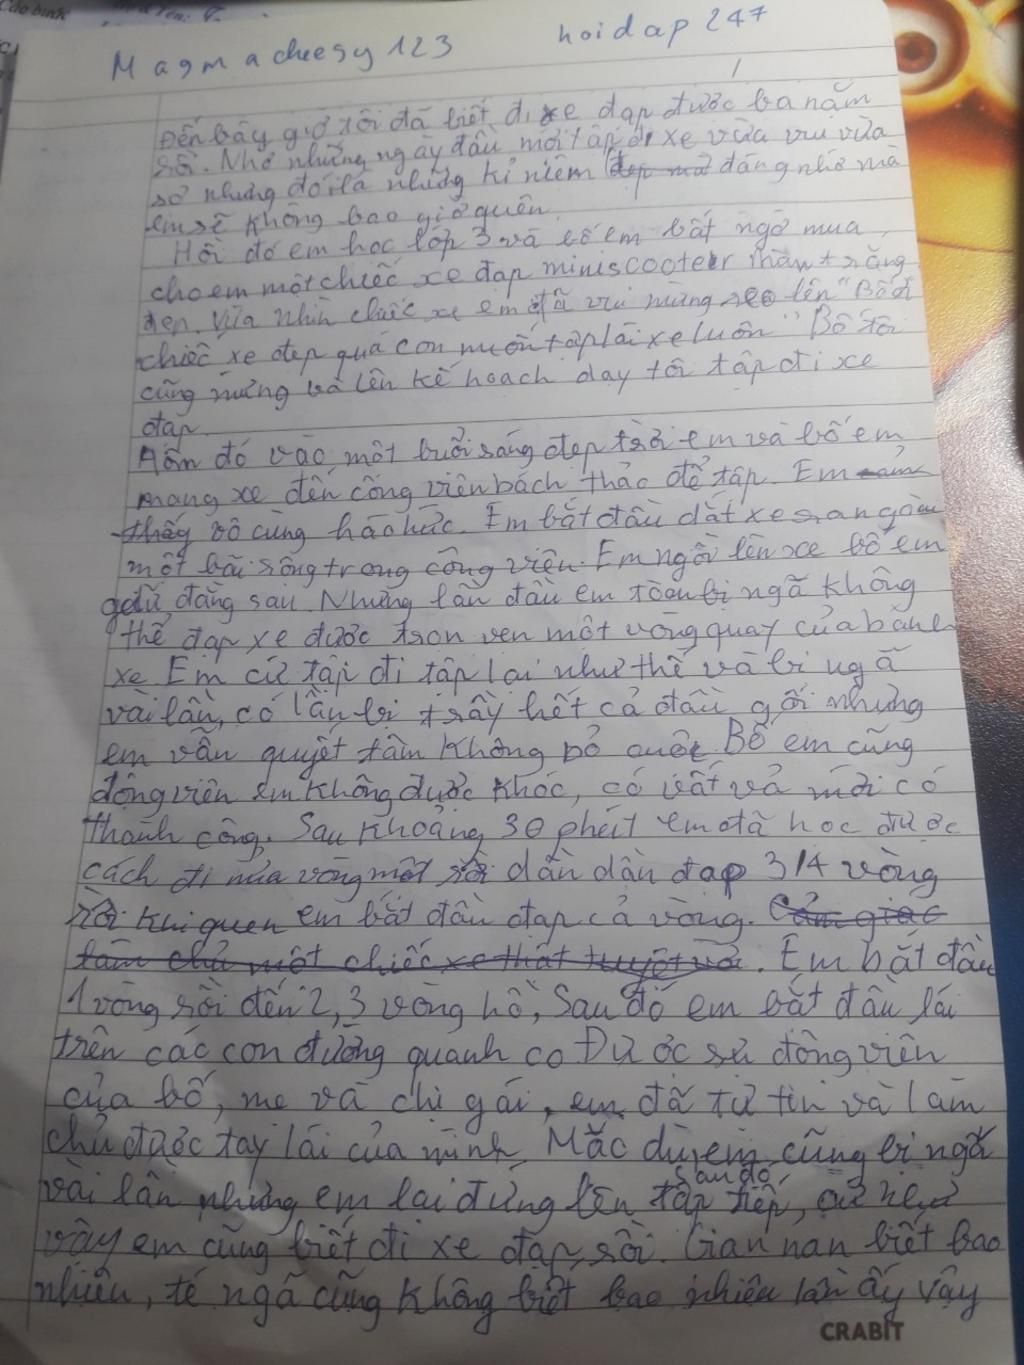 Magmacheesy123 hoidap247
1
Đến bây giờ tôi đã biết đi xe đạp được ba năm
rồi. Nhớ những ngày đầu mới tập đi xe vừa vui vừa
sợ nhưng đó là những kỉ niệm đáng nhớ mà
em sẽ không bao giờ quên.
Hồi đó em học lớp 3 và bố em bất ngờ mua
cho em một chiếc xe đạp miniscooter màu trắng
đẹp. Vừa nhìn chiếc xe em đã vui mừng reo lên "Bố ơi
chiếc xe đẹp quá con muốn tập lái xe luôn" Bố tôi
cũng mừng và lên kế hoạch dạy tôi tập đi xe
đạp
Hôm đó vào một buổi sáng đẹp trời em và bố em
mang xe đến công viên bách thảo để tập. Em cảm
thấy vô cùng háo hức. Em bắt đầu dắt xe ra ngoài
một bãi rộng trong công viên. Em ngồi lên xe bố em
giữ đằng sau. Những lần đầu em toàn bị ngã không
thể đạp xe được trọn vẹn một vòng quay của bánh
xe Em cứ tập đi tập lại như thế và bị ngã
vài lần, có lần bị trầy hết cả đầu gối nhưng
em vẫn quyết tâm không bỏ cuộc Bố em cũng
động viên em không được khóc, có vất vả mới có
thành công. Sau khoảng 30 phút em đã học được
cách đi nửa vòng một rồi dần dần đạp 3/4 vòng
rồi khi quen em bắt đầu đạp cả vòng. Cảm giác
làm chủ một chiếc xe thật tuyệt vời. Em bắt đầu
1 vòng rồi đến 2, 3 vòng hồ, Sau đó em bắt đầu lái
trên các con đường quanh co Được sự động viên
của bố, mẹ và chị gái, em đã tự tin và làm
chủ được tay lái của mình. Mặc dù em cũng bị ngã
sau đó
vài lần nhưng em lại đứng lên tập tiếp, cứ như
vậy em cũng biết đi xe đạp rồi. Gian nan biết bao
nhiêu, té ngã cũng không biết bao nhiêu lần ấy vậy
CRABIT